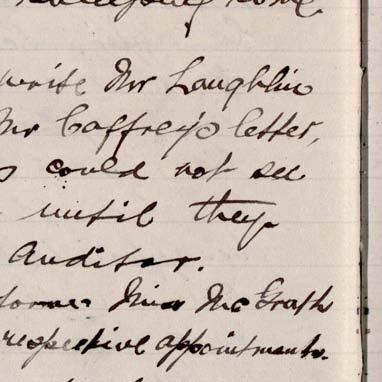 write Mr Laughlin
Mr Caffrey's letter,
could not see
until they
Auditor.
Miss McGrath
respective appointments.